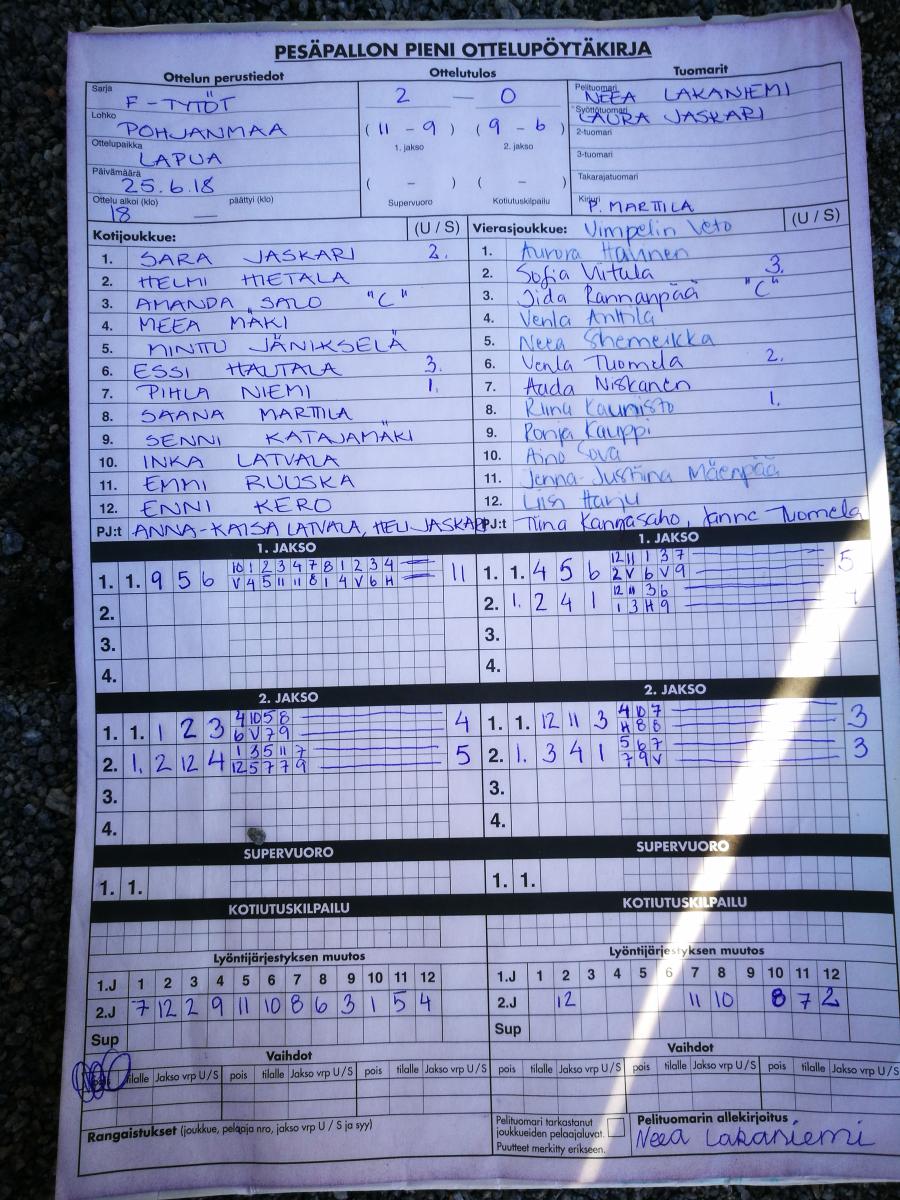 PESÄPALLON PIENI OTTELUPÖYTÄKIRJA
Ottelun perustiedot Ottelutulos Tuomarit
Sarja F-TYTÖT
Lohko POHJANMAA
Ottelupaikka LAPUA
Päivämäärä 25.6.18
Ottelu alkoi (klo) 18 päättyi (klo) —
2 — 0
(11 - 9) (9 - 6)
1. jakso 2. jakso
( - ) ( - )
Supervuoro Kotiutuskilpailu
Pelituomari NEEA LAKANIEMI
Syöttötuomari LAURA JASKARI
2-tuomari
3-tuomari
Takarajatuomari
Kirjuri P. MARTTILA
Kotijoukkue: (U / S)
1. SARA JASKARI 2.
2. HELMI HIETALA
3. AMANDA SALO "C"
4. MEEA MÄKI
5. MINTTU JÄNIKSELÄ
6. ESSI HAUTALA 3.
7. PIHLA NIEMI 1.
8. SAANA MARTTILA
9. SENNI KATAJAMÄKI
10. INKA LATVALA
11. EMMI RUUSKA
12. ENNI KERO
PJ:t ANNA-KAISA LATVALA, HELI JASKARI
Vierasjoukkue: Vimpelin Veto (U / S)
1. Aurora Halinen
2. Sofia Viitala 3.
3. Iida Rannanpää "C"
4. Venla Anttila
5. Neea Shemeikka
6. Venla Tuomela 2.
7. Aada Niskanen
8. Riina Kaunisto 1.
9. Ronja Kauppi
10. Aino Sova
11. Jenna-Justiina Mäenpää
12. Liisi Harju
PJ:t Tiina Kangasaho, Janne Tuomela
1. JAKSO
1. 1. 9 5 6 10 1 2 3 4 7 8 1 2 3 4 11
V 4 5 11 11 8 1 4 V 6 H
2.
3.
4.
1. JAKSO
1. 1. 4 5 6 12 11 1 3 7 5
2 V 6 V 9
2. 1. 2 4 1 12 11 3 6
1 3 H 9
3.
4.
2. JAKSO
1. 1. 1 2 3 4 10 5 8 4
6 V 7 9
2. 1. 2 12 4 1 3 5 11 7 5
12 5 7 7 9
3.
4.
2. JAKSO
1. 1. 12 11 3 4 10 7 3
H 8 8
2. 1. 3 4 1 5 6 7 3
7 9 V
3.
4.
SUPERVUORO SUPERVUORO
1. 1. 1. 1.
KOTIUTUSKILPAILU KOTIUTUSKILPAILU
Lyöntijärjestyksen muutos
1.J 1 2 3 4 5 6 7 8 9 10 11 12
2.J 7 12 2 9 11 10 8 6 3 1 5 4
Sup
Lyöntijärjestyksen muutos
1.J 1 2 3 4 5 6 7 8 9 10 11 12
2.J 12 11 10 8 7 2
Sup
Vaihdot Vaihdot
pois tilalle Jakso vrp U / S pois tilalle Jakso vrp U / S pois tilalle Jakso vrp U / S pois tilalle Jakso vrp U / S pois tilalle Jakso vrp U / S pois tilalle Jakso vrp U / S
Rangaistukset (joukkue, pelaaja nro, jakso vrp U / S ja syy)
Pelituomari tarkastanut
joukkueiden pelaajaluvat.
Puutteet merkitty erikseen.
Pelituomarin allekirjoitus
Neea Lakaniemi